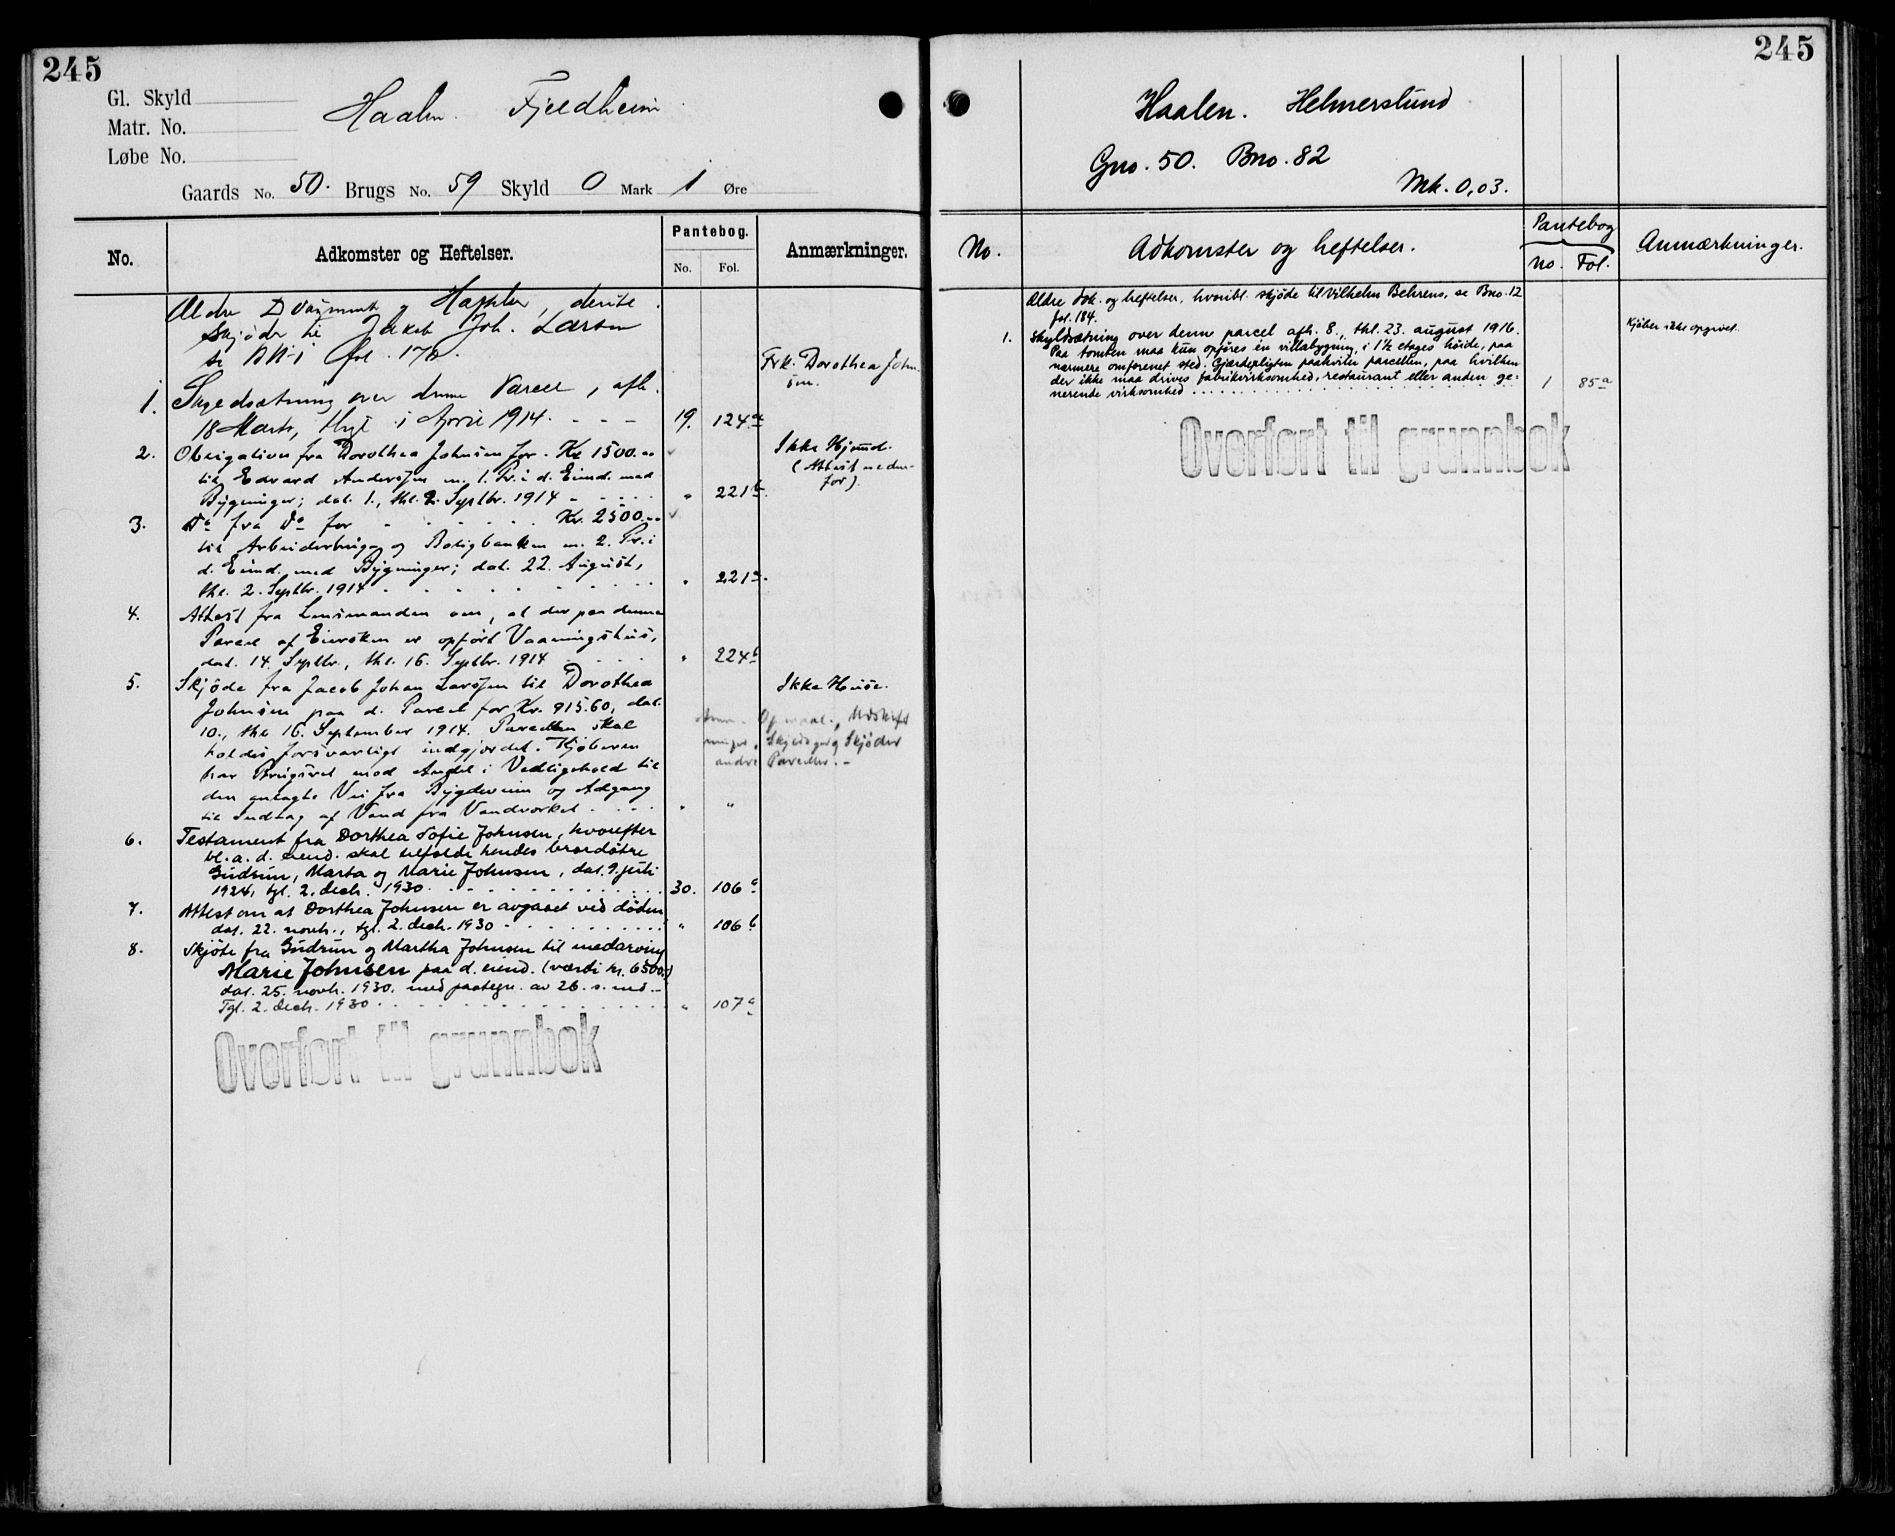 245
Gl. Skyld
Matr. No.
Løbe No.
Haalen. Fjeldheim
Gaards No. 50. Brugs No. 59 Skyld 0 Mark 1 Øre
No. Adkomster og Heftelser. Pantebog. No. Fol. Anmærkninger.
Ældre Dokument og Hæftelser, derite
Skjøde til Jakob Joh. Larsen
se Fol. 178.
Frk. Dorothea John-
sen.
1. Skyldsætning over denne Parcel, afh.
18 Marts, thgl. 1 April 1914. - - - 19. 124a
2. Obligation fra Dorothea Johnsen for Kr. 1500.00
til Edvard Anderssen m. 1. Pr. i d. Eiend. med
Bygninger; dat. 1., thl. 2. Septbr. 1914 - - - " 221b.
Ikke Hjemmel.
(Attest neden-
for).
3. Do fra do for - - - Kr. 2500.00
til Arbeiderbrug og Boligbanken m. 2. Pr. i
d. Eiend. med Bygninger; dat. 22. August,
thl. 2. Septbr. 1914 - - - - " 221a.
4. Attest fra Lensmanden om, at der paa denne
Parcel af Eiersken er opført Vaaningshus,
dat. 14. Septbr., thl. 16. Septbr. 1914 - - - " 224b
5. Skjøde fra Jacob Johan Larssen til Dorothea
Johnsen paa d. Parcel for Kr. 915.60, dat.
10., thl. 16. September 1914. Parcellen skal
holdes forsvarligt indgjerdet. Kjøberen
har Brugsret mod Andel i Vedligehold til
den anlagte Vei fra Bygdeveien og Adgang
til Indlag af Vand fra Vandverket - - - " "
Ikke Huse.
Anm. Opmaal., Udskift
ninger, Skyldsg. og Skjøder
andre Parceller. -
6. Testament fra Dorthea Sofie Johnsen, hvorefter
bl. a. d. eiend. skal tilfalde hendes brordøtre
Gudrun, Marta og Marie Johnsen, dat. 9. juli
1924, tgl. 2. decb. 1930 . . . . 30. 106a
7. Attest om at Dorthea Johnsen er avgaaet ved døden
dat. 22. novb., tgl. 2. decb. 1930 - - - " 106b
8. Skjøte fra Gudrun og Martha Johnsen til medarving
Marie Johnsen paa d. eiend. (værdi kr. 6500.-)
dat. 25. novb. 1930. med paategn. av 26. s. md. -
Tgl. 2. decb. 1930 - - - - " 107a
Overført til grunnbok
245
Haalen. Helmerslund
Gno. 50. Bno. 82
Mk. 0,03.
No. Adkomster og heftelser. Pantebog No. Fol. Anmærkninger.
Ældre dok. og heftelser, hvoribl. skjøde til Vilhelm Behrens, se Bno. 12
fol. 184.
1. Skyldsætning over denne parcel afh. 8., thl. 23. august 1916.
Paa tomten maa kun opføres én villabygning, i 1½ etages høide, paa
nærmere omforenet sted. Gjærdepligten paahviler parcellen, paa hvilken
der ikke maa drives fabrikvirksomhed, restaurant eller anden ge-
nerende virksomhed . . . . . . 1 85a
Kjøber ikke opgivet.
Overført til grunnbok